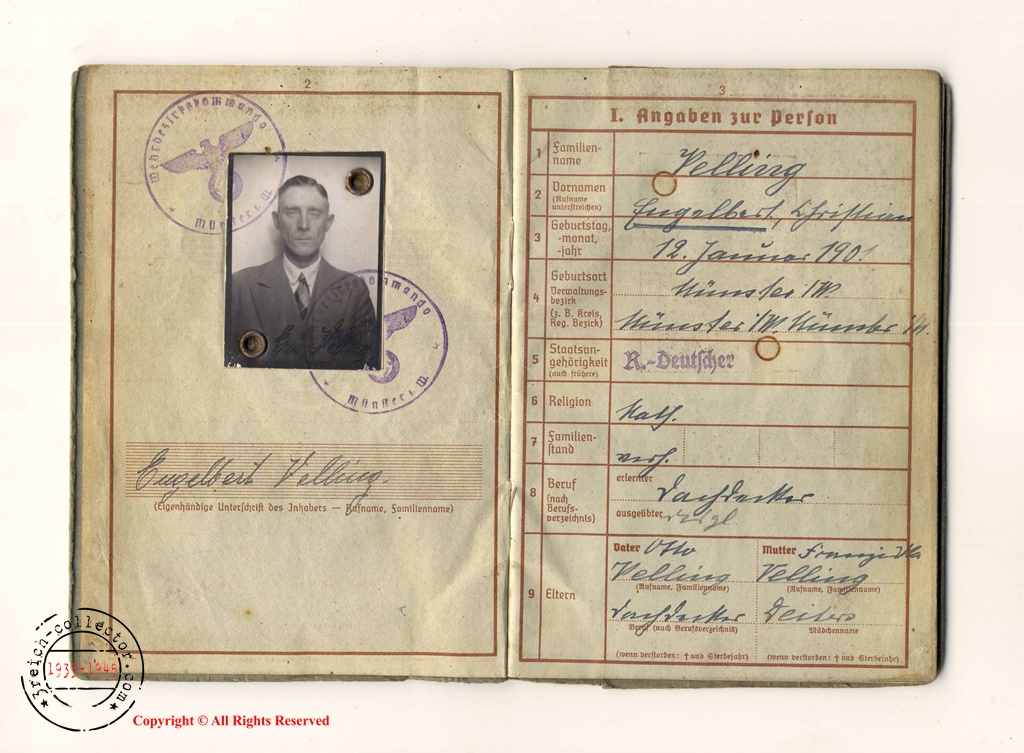 2
Wehrbezirkskommando
Münster i. W.
Wehrbezirkskommando
Münster i. W.
Engelbert Velling.
(Eigenhändige Unterschrift des Inhabers — Rufname, Familienname)
3
I. Angaben zur Person
1 Familien-
name
Velling
2 Vornamen
(Rufname
unterstreichen)
Engelbert, Christian
3 Geburtstag,
-monat,
-jahr
12. Januar
4 Geburtsort
Verwaltungs-
bezirk
(z. B. Kreis,
Reg. Bezirk)
Münster i/W.
Münster i/W. Münster i/W.
5 Staatsan-
gehörigkeit
(auch frühere)
R.-Deutscher
6 Religion
Kath.
7 Familien-
stand
verh.
8 Beruf
(nach
Berufs-
verzeichnis)
erlernter
Dachdecker
ausgeübter
dergl
9 Eltern
Vater Otto
Velling
(Rufname, Familienname)
Dachdecker
Beruf (nach Berufsverzeichnis)
(wenn verstorben: † und Sterbejahr)
Mutter Franziska
Velling
(Rufname, Familienname)
Deiters
Mädchenname
(wenn verstorben: † und Sterbejahr)
3reich-collector.com
1933-1945
Copyright © All Rights Reserved